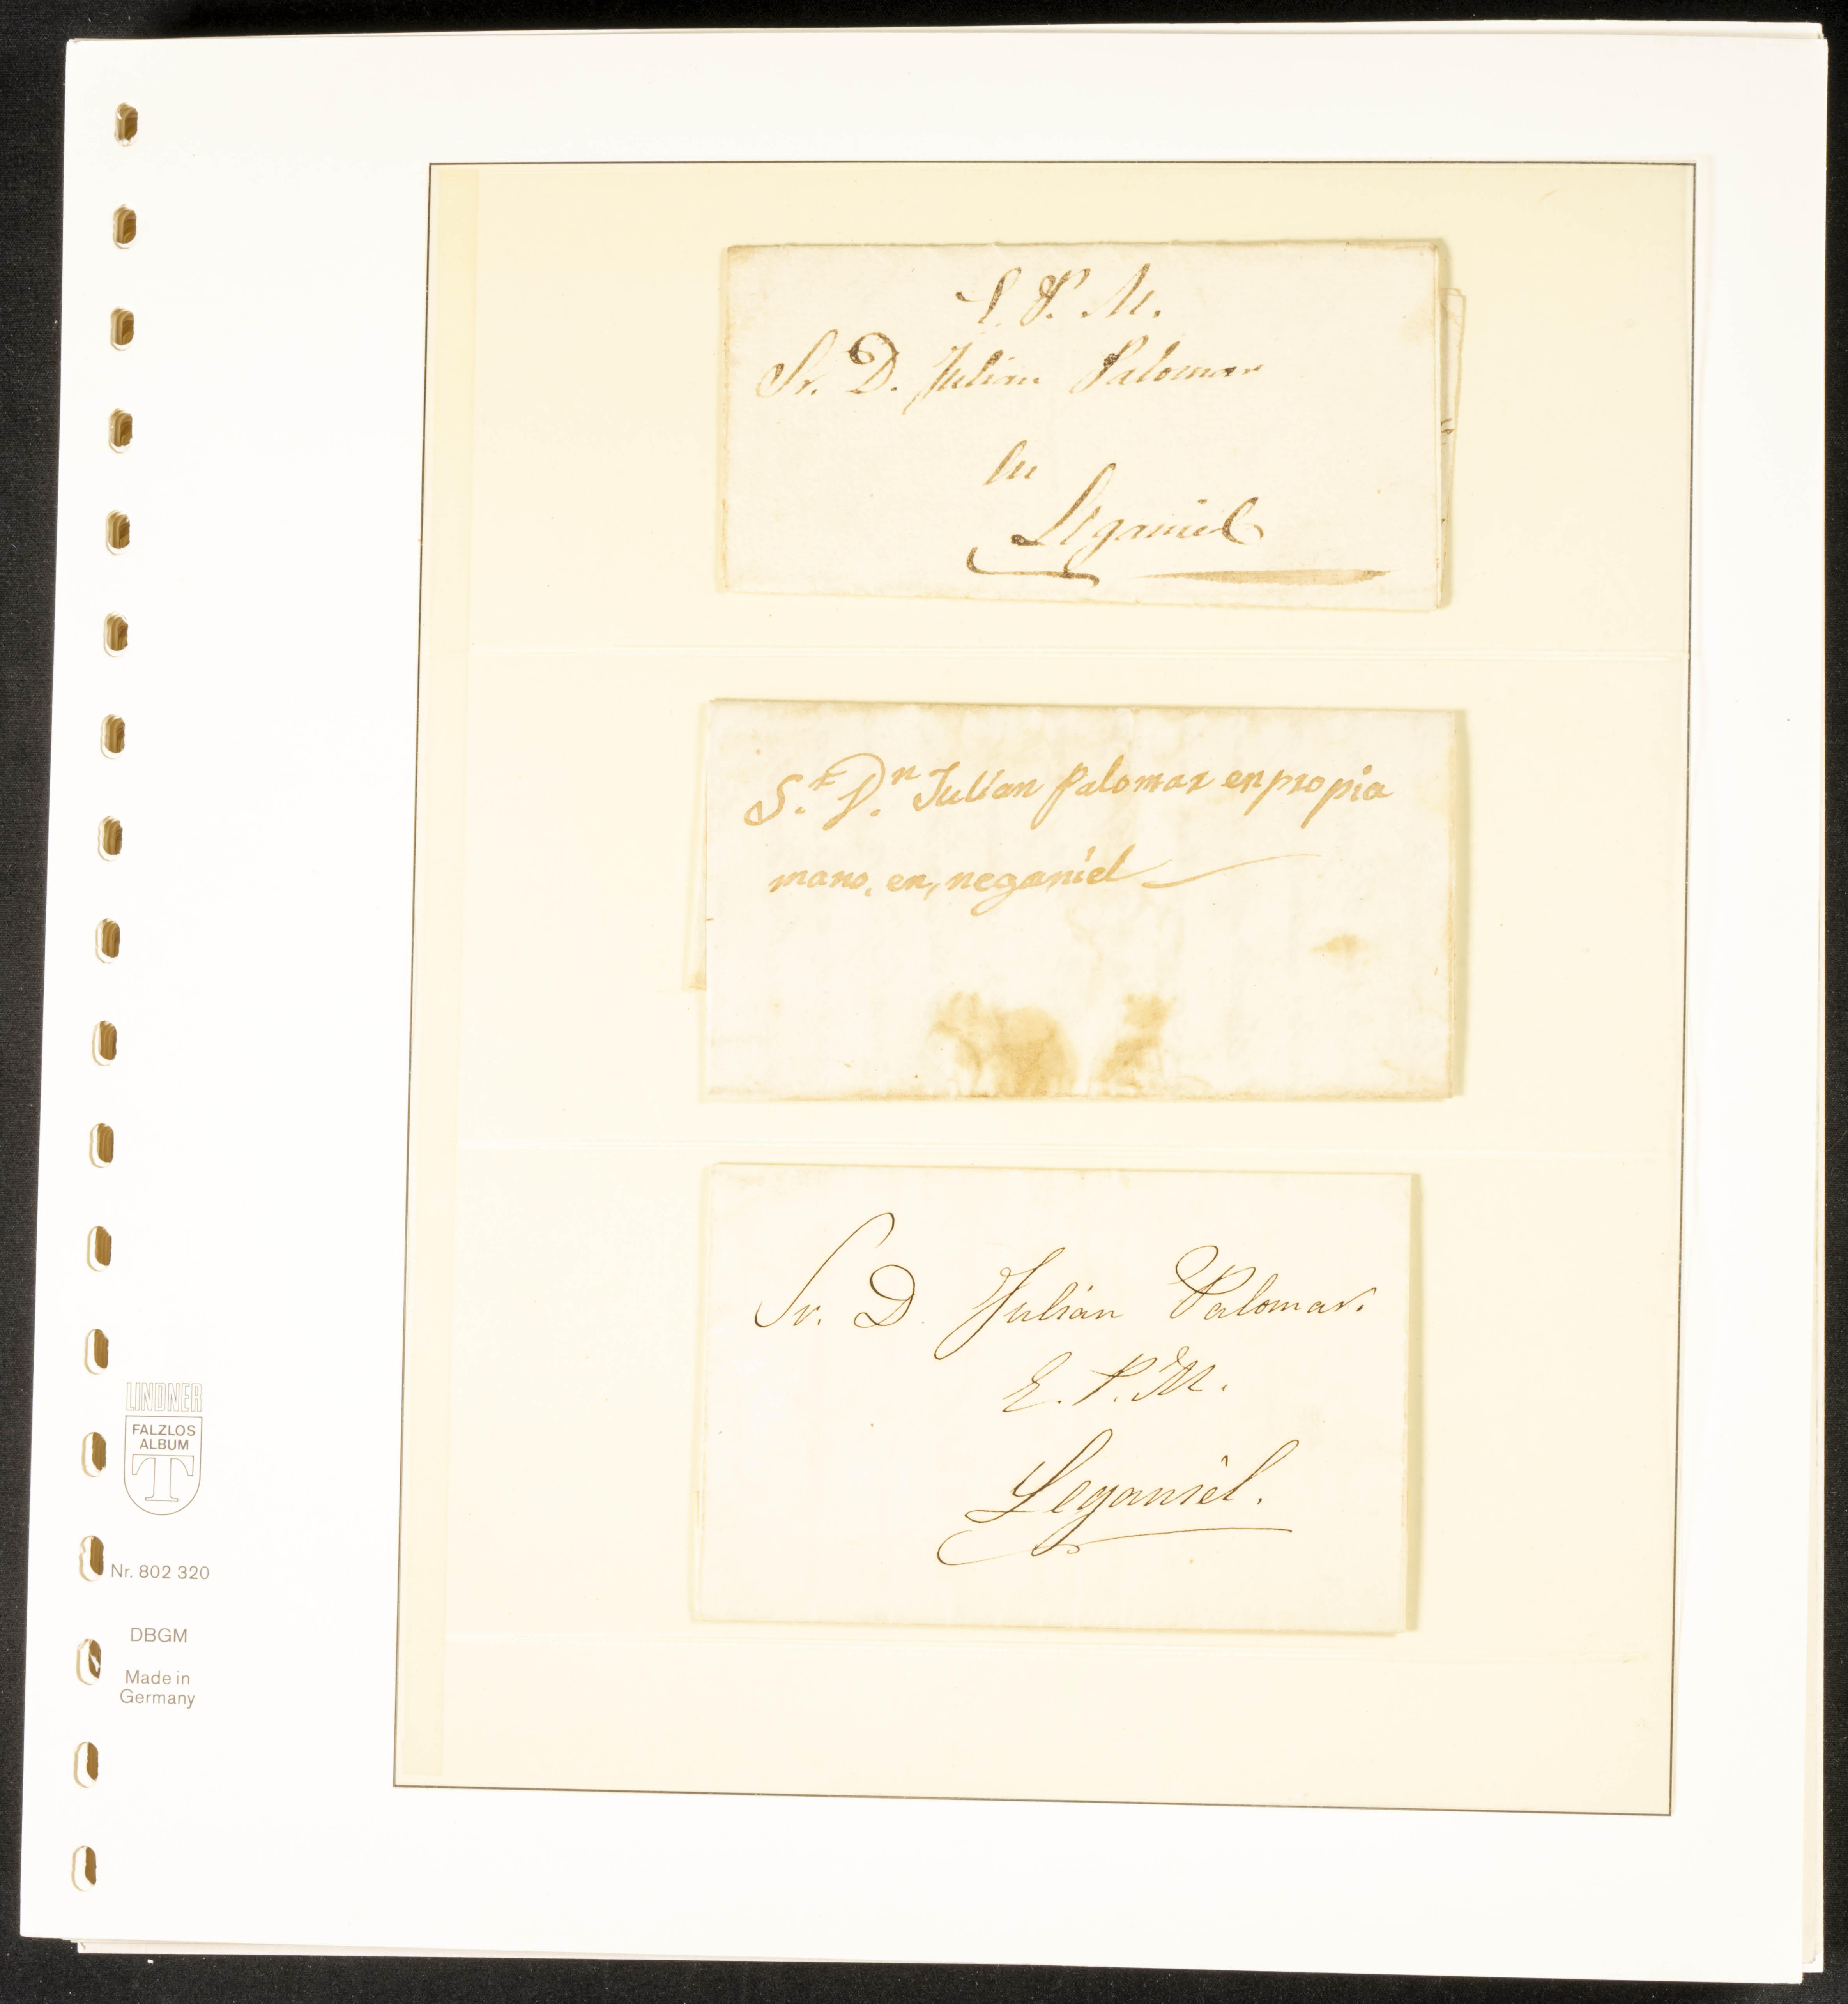 E. P. M.
Sr. D. Julian Palomar
En
Leganiel
S.r D.n Julian Palomar en propia
mano, en, neganiel
Sr. D. Julian Palomar.
E. P. M.
Leganiel.
LINDNER
FALZLOS
ALBUM
T
Nr. 802 320
DBGM
Made in
Germany